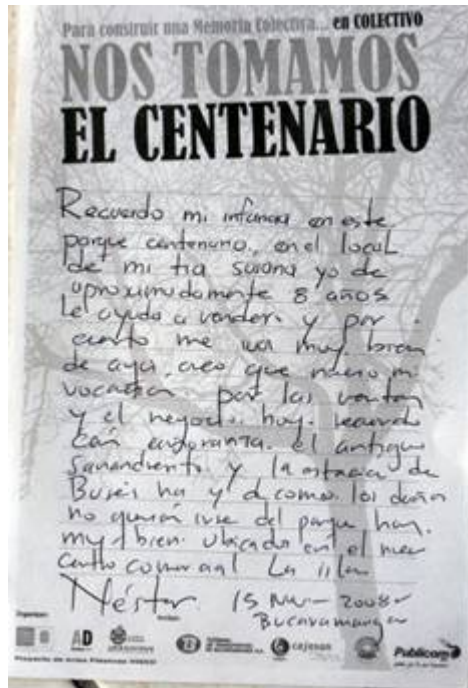 Para construir una Memoria Colectiva... en COLECTIVO
NOS TOMAMOS
EL CENTENARIO
Recuerdo mi infancia en este
parque centenario, en el local
de mi tia yo de
aproximadamente 8 años
le ayuda a vender y por
cierto me iva muy bien
de aya, creo que nacio mi
vocación por las ventas
y el negocio. hoy. recuerdo
con el antiguo
y la estacion de
Buses ha y d como los
no querian irse del parque hoy.
muy bien ubicados en el
centro comercial La isla
Néstor. 15 2008
Bucaramanga
AD
cajasan
Publicom